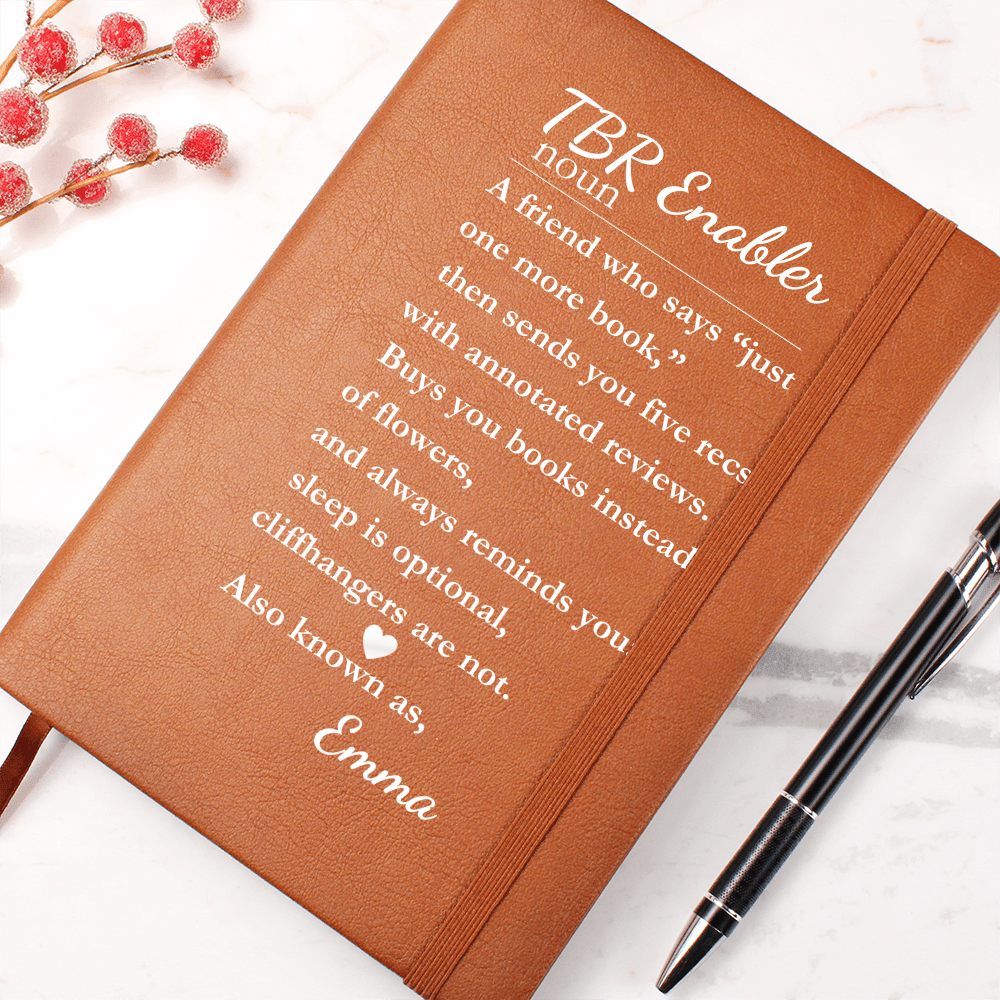 TBR Enabler
noun
A friend who says “just
one more book,”
then sends you five recs
with annotated reviews.
Buys you books instead
of flowers,
and always reminds you
sleep is optional,
cliffhangers are not.
Also known as,
Emma